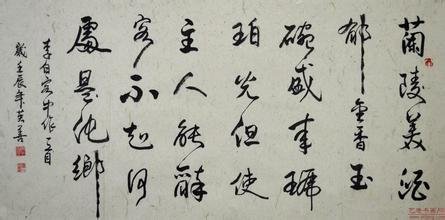 蘭陵美酒
郁金香玉
碗盛来琥
珀光但使
主人能醉
客不知何
處是他鄉
李白客中作一首
歲壬辰年